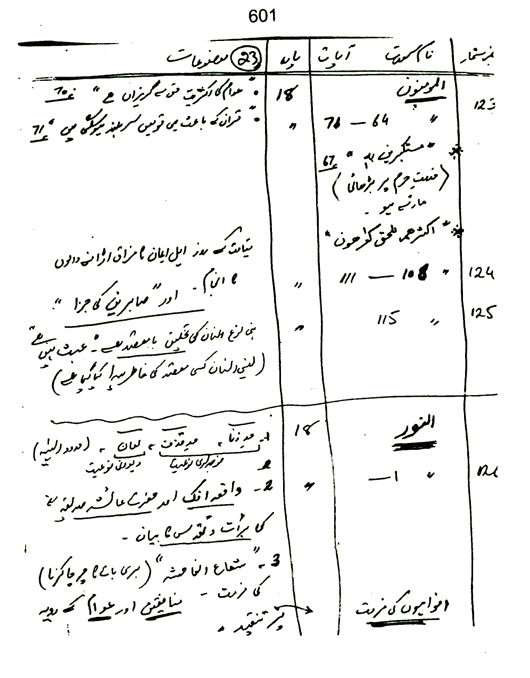 601
نمبر شمار نام سورت آیات پارہ (23) موضوعات
123 المومنون 18 • عوام کی اکثریت حق سے گریزاں ہے " 70
" 64 — 76 " • قرآن کے باعث ہی قومیں سربلند ہو سکتی ہیں " 71
* " مستکبرین بہ " 67
( حرم پر بڑھائی )
مارتے ہو -
* " اکثرھم للحق کٰرھون "
قیامت کے روز اہل ایمان کا مزاق اڑانے والوں
124 " 108 — 111 " کا انجام - اور " صابرین کی جزا " .
125 " 115 " بنی نوع انسان کی تخلیق بامقصد ہے - عبث نہیں ہے "
( یعنی انسان کسی مقصد کی خاطر پیدا کیا گیا ہے )
النور 18 1- حد زنا ، حد قذف ، لعان - ( حدود الٰہیہ )
فوجداری نوعیت دیوانی نوعیت
" 1 — " 2- واقعہ افک اور حضرت عائشہ صدیقہ
کی برأت و تقدس کا بیان -
3- " شاع الفاحشة " ( بری بات کا چرچا کرنا )
افواہوں کی مزمت کی مزمت - منافقین اور عوام کے رویہ
پر تنقید -